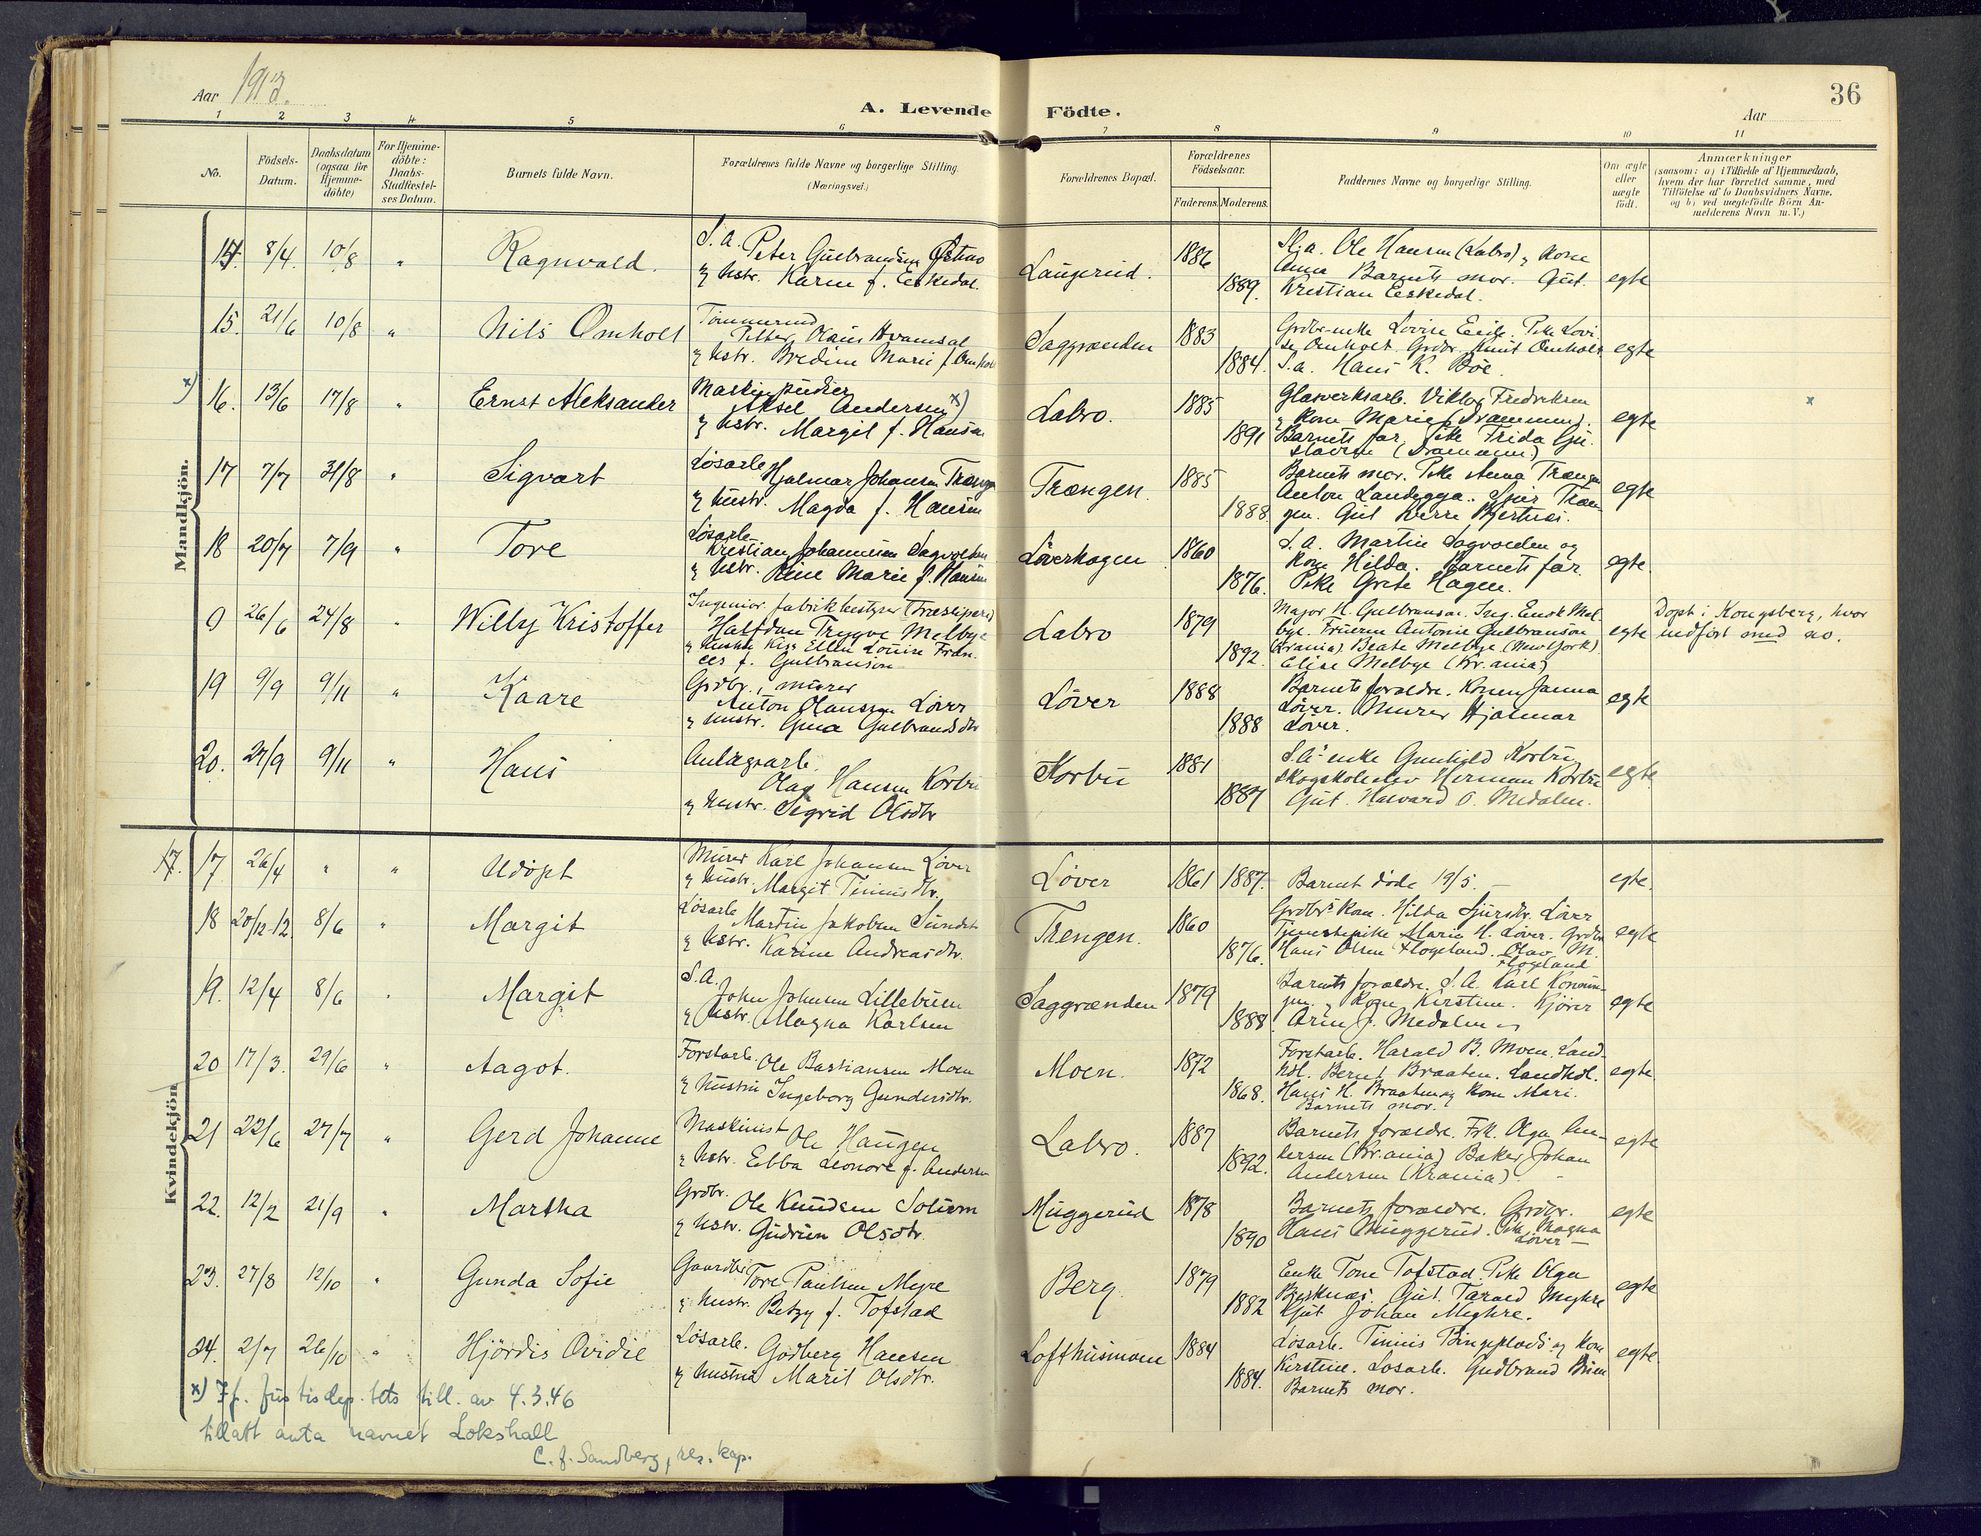 36
Aar 1913.
A. Levende Födte.
Aar
1 2 3 4 5 6 7 8 9 10 11
No.
Födsels-Datum.
Daabsdatum (ogsaa for Hjemme-döbte)
For Hjemme-döbte: Daabs-Stadfestel-ses Datum.
Barnets fulde Navn.
Forældrenes fulde Navne og borgerlige Stilling (Næringsvei.)
Forældrenes Bopæl.
Forældrenes Födselsaar.
Faderens. Moderens.
Faddernes Navne og borgerlige Stilling.
Om ægte eller uægte födt.
Anmærkninger
(saasom: a) i Tilfælde af Hjemmedaab, hvem der har forrettet samme, med Tilföielse af to Daabsvidners Navne. og b) ved uegtefödte Börn Anmelderens Navn m. V.)
Mandkjön.
14. 8/4. 10/8 " Ragnvald.
S.A. Peter Gulbrandsen
& Hstr. Karen f. Eskedal.
Laugerud. 1886 1889.
Ole Hansen (Labro) & Kone
Anna Barnets mor. Gut.
Kristian Eskedal.
egte
15. 21/6 10/8 " Nils Omholt
Petter Olaus
& Hstr. Bredine Marie f. Omholt
Saggrænden 1883 1884.
Lovise Pike Lovi
se Omholt. Grdbr. Knut Omholt
S.a. Hans K. Böe.
egte
x) 16. 13/6 17/8 " Ernst Aleksander
Aksel Andersen x)
& Hstr. Margit f. Hansen
Labro. 1885 1891
Glasverksarb. Viktor Fredriksen
& Kone Marie (Drammen).
Barnets far, Pike Frida Gu-
stavsen (Drammen)
egte x
17 7/7 31/8 " Sigvart
Lösarb. Hjalmar Johansen Trængen
& Hustr. Magda f. Hansen
Trængen. 1885 1888
Barnets mor. Pike Anna Trængen
Anton Landsgga.
gen. Gut
egte
18 20/7 7/9 " Tore
Lösarb.
Kristian Johannesen Sagvolden
& Hstr. Line Marie f. Hansen
Löverhagen 1860 1876.
S.A. Martin Sagvolden og
Kone Hilda. Barnets far.
Pike Grete Hagen.
egte
9 26/6 24/8 " Willy Kristoffer
Ingeniör, fabrikbestyrer (Træsliperi)
Halfdan Trygve Melbye
& Hustru Ellen Louise Fran-
ces f. Gulbranson
Labro 1879 1892.
Major H. Gulbranson. Ing. Mel-
bye. Antonie Gulbranson
(Krania) Beate Melbye (New York)
Elise Melbye (Kr.ania)
egte
Döpt i Kongsberg, hvor
indfört med no.
19 9/9 9/11 " Kaare
Grdbr., murer
Anton Olaussen Löver
& Hustr. Gina Gulbrandsdtr
Löver 1888 1888
Barnets forældre. Konen Janna
Löver. Murer Hjalmar
Löver.
egte
20. 27/9 9/11 " Hans
Anlægsarb.
Olaf Hansen Korbu
& Hustr. Sigrid Olsdtr
Korbu 1881 1887
S.A.s enke Gunhild Korbu
Skogskoleelev Herman Korbu
Gut. Halvard O. Medalen.
egte
Kvindekjön
17. 17 26/4 " " Udöpt
Murer Karl Johansen Löver
& Hustr. Margit Tinius dtr.
Löver 1861 1887.
Barnet döde 19/5. —
egte.
18 20/12 12. 8/6 " Margit
Lösarb. Martin Jakobsen
& Hstr. Karine Andreasdtr.
Trengen. 1860 1876.
Grdbrs kone. Hilda Sjursdtr. Löver
Tjenestepike Marie H. Löver. Grdbr
Hans Olsen Flogeland. Olav M.
Flogeland
egte
19. 12/4 8/6 " Margit
S.A.
John Johnsen Lillebuen
& Hstr. Magna Karlsen
Saggrænden 1879 1888
Barnets forældre. S.A. Karl
& Kone Kirstine.
J. Medalen
egte
20 17/3. 29/6 " Aagot.
Forstarb. Ole Bastiansen Moen
& Hustru Ingeborg Gundersdtr.
Moen. 1872 1868.
Forstarb. Harald B. Moen. Land-
hdl. Bernt Braaten. Landhdl.
Hans H. Braaten og Kone Mari.
Barnets mor.
egte.
21 22/6 27/7 " Gerd Johanne
Maskinist Ole Haugen
& Hstr. Ebba Leonora f. Andersen
Labro. 1887 1892.
Barnets forældre. Frk. Olga An-
dersen (Kr.ania) Baker Johan
Andersen (Krania).
egte
22. 12/2 21/9 " Martha
Grdbr. Ole Knudsen Solum
& Hstr. Gudrun Olsdtr.
Muggerud 1878 1890
Barnets forældre. Grdbr.
Hans Muggerud. Pike Magna
Löver —
egte
23. 27/8 12/10 " Gunda Sofie
Gaardbr. Tore Paulsen Myre
& Hustr. Betzy f. Tofstad
Berg. 1879 1882
Enke Tone Tofstad. Pike Olga
Gut. Tarald Myhre
Gut Johan Myhre.
egte
24. 2/7 26/10 " Hjördis Ovidie
Lösarb. Godberg Hansen
& Hustru Marit Olsdtr.
Lofthusmoen 1884 1884.
Lösarb. Tinius & Kone
Kirstine. Lösarb. Gudbrand
Barnets mor.
egte
x) If. Justisdep.tets till. av 4.3.46
tillatt anta navnet Lokshall
C. f. Sandberg, res. kap.